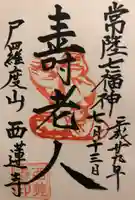 常陸七福神
平成廿九年
七月十三日
寿老人
戸羅度山
西蓮寺